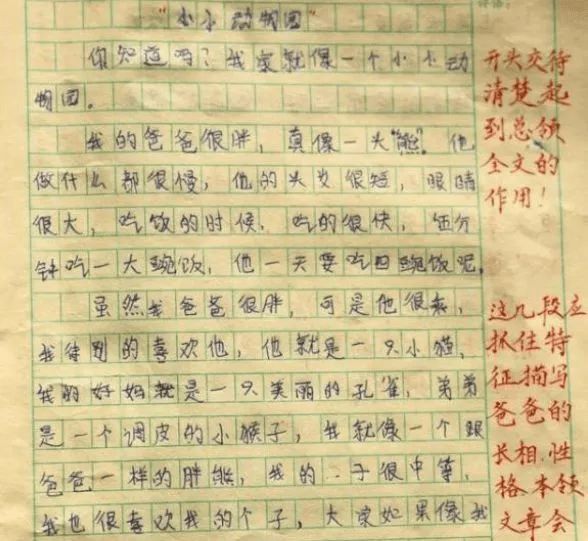 "小小动物园"
你知道吗？我家就像一个小小动
物园。
我的爸爸很胖，真像一头"熊"。他
做什么都很慢，他的头发很短，眼睛
很大，吃饭的时候，吃的很快，伍分
钟吃一大碗饭，他一天要吃四碗饭呢。
虽然我爸爸很胖，可是他很
我特别的喜欢他，他就是一只小猫，
我的好妈就是一只美丽的孔雀，弟弟
是一个调皮的小猴子，我就像一个跟
爸爸一样的胖熊，我的 子很中等，
我也很喜欢我的个子，大家如果像我
开头交待
清楚起
到总领
全文的
作用！
这几段应
抓住特
征描写
爸爸的
长相、性
格本领
文章会